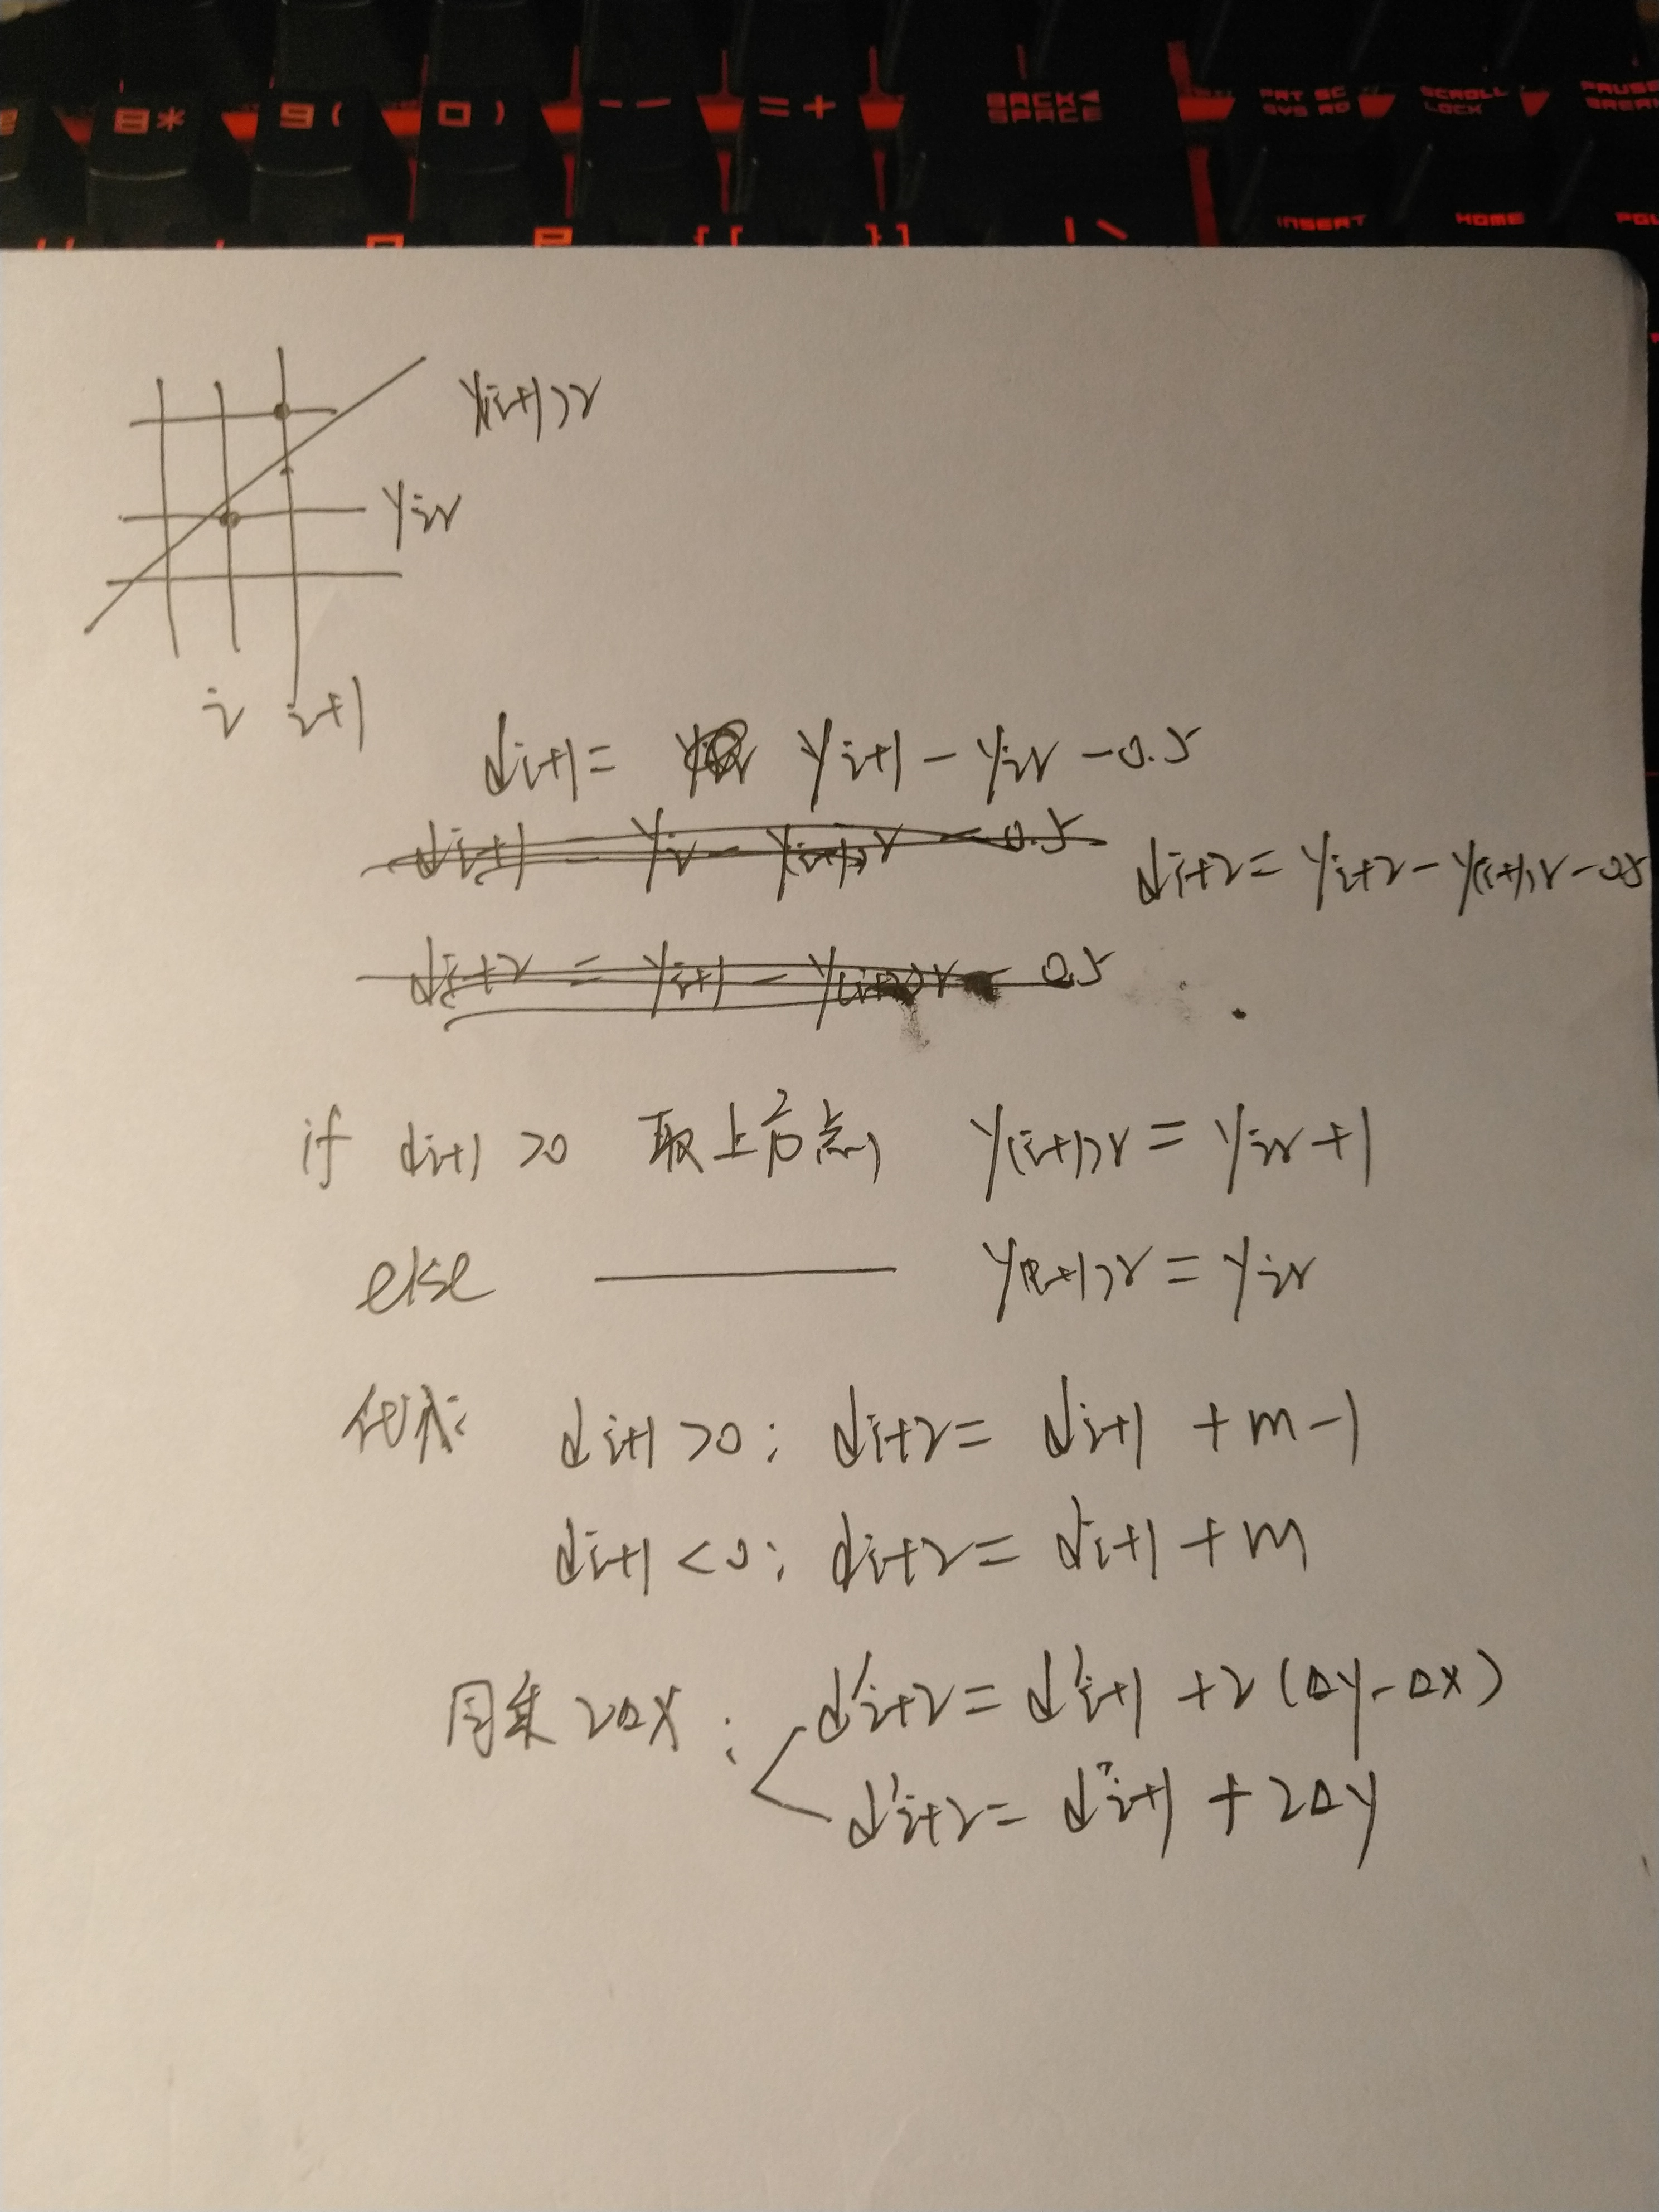 8* 9( 0) -- =+ BACK SPACE PRT SC SYS RQ SCROLL LOCK PAUSE BREAK
P {[ }] |\ INSERT HOME PGU
y(i+1)r
yir
i i+1
di+1 = yi+1 - yir - 0.5
di+1 = yi - y(i+1)r - 0.5
di+2 = yi+2 - y(i+1)r - 0.5
di+2 = yi+1 - y(i+2)r - 0.5
if di+1 >0 取上方点 y(i+1)r = yir +1
else —— y(i+1)r = yir
代入: di+1 >0: di+2 = di+1 +m-1
di+1 <0: di+2 = di+1 +m
同乘 2△x : d'i+2 = d'i+1 +2(△y-△x)
d'i+2 = d'i+1 + 2△y